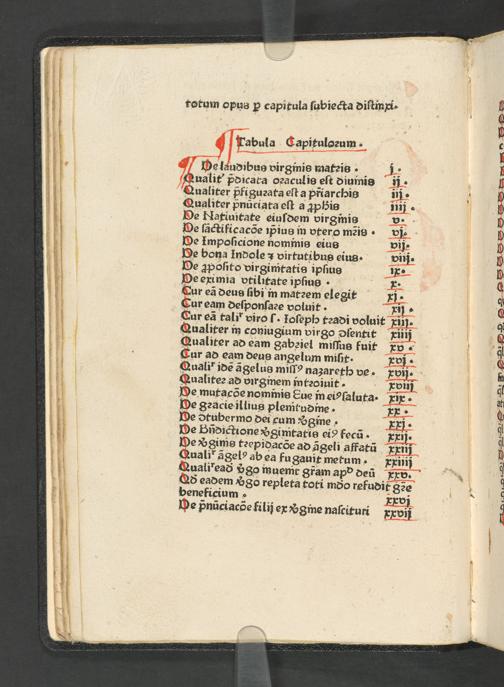 totum opus ꝑ capitula subiecta distinxi.
Tabula Capitulorum.
De laudibus virginis matris. j.
Qualit᷑ p̄dicata oraculis est diuinis ij.
Qualiter p̄figurata est a pr̄iarchis iij.
Qualiter p̄nūciata est a ꝓphis iiij.
De Natiuitate eiusdem virginis v.
De sāctificacōe ip̄ius in vtero mr̄is. vj.
De Imposicione nominis eius vij.
De bona Indole ⁊ virtutibus eius. viij.
De ꝓposito virginitatis ipsius ix.
De eximia vtilitate ipsius. x.
Cur eā deus sibi in matrem elegit xj.
Cur eam desponsare voluit. xij.
Cur eā tali viro s. Ioseph tradi voluit xiij.
Qualiter in coniugium virgo ꝯsentit xiiij
Qualiter ad eam gabriel missus fuit xv.
Cur ad eam deus angelum misit. xvj.
Quali᷑ idē āgelus missꝰ nazareth ve. xvij.
Qualiter ad virginem introiuit. xviij
De mutacōe nominis Eue in eiꝰ saluta. xix.
De gracie illius plenitudine. xx.
De ꝯtubernio dei cum v̄gine. xxj.
De Bn̄dictione v̄ginitatis eiꝰ fecū. xxij.
De v̄ginis trepidacōe ad āgeli affatū xxiij
Quali᷑ āgelꝰ ab ea fugauit metum. xxiiij
Quali᷑ ead v̄go inuenit grām apd̄ deū xxv.
Qd̄ eadem v̄go repleta toti mūdo refudit grē
beneficium. xxvj
De p̄nūciacōe filij ex v̄gine nascituri xxvij